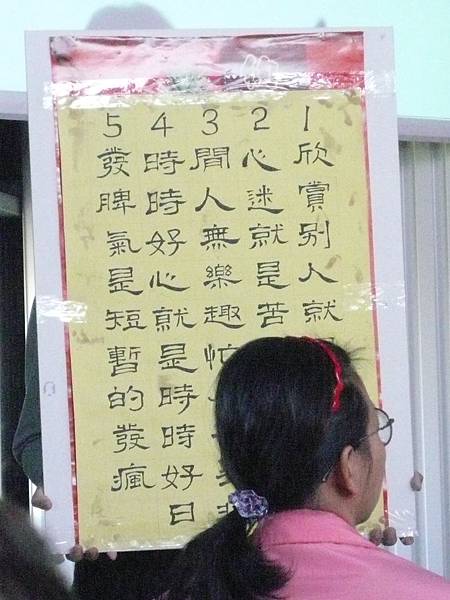 1欣賞別人就
2心迷就是苦
3閒人無樂趣忙
4時時好心就是時時好日
5發脾氣是短暫的發瘋